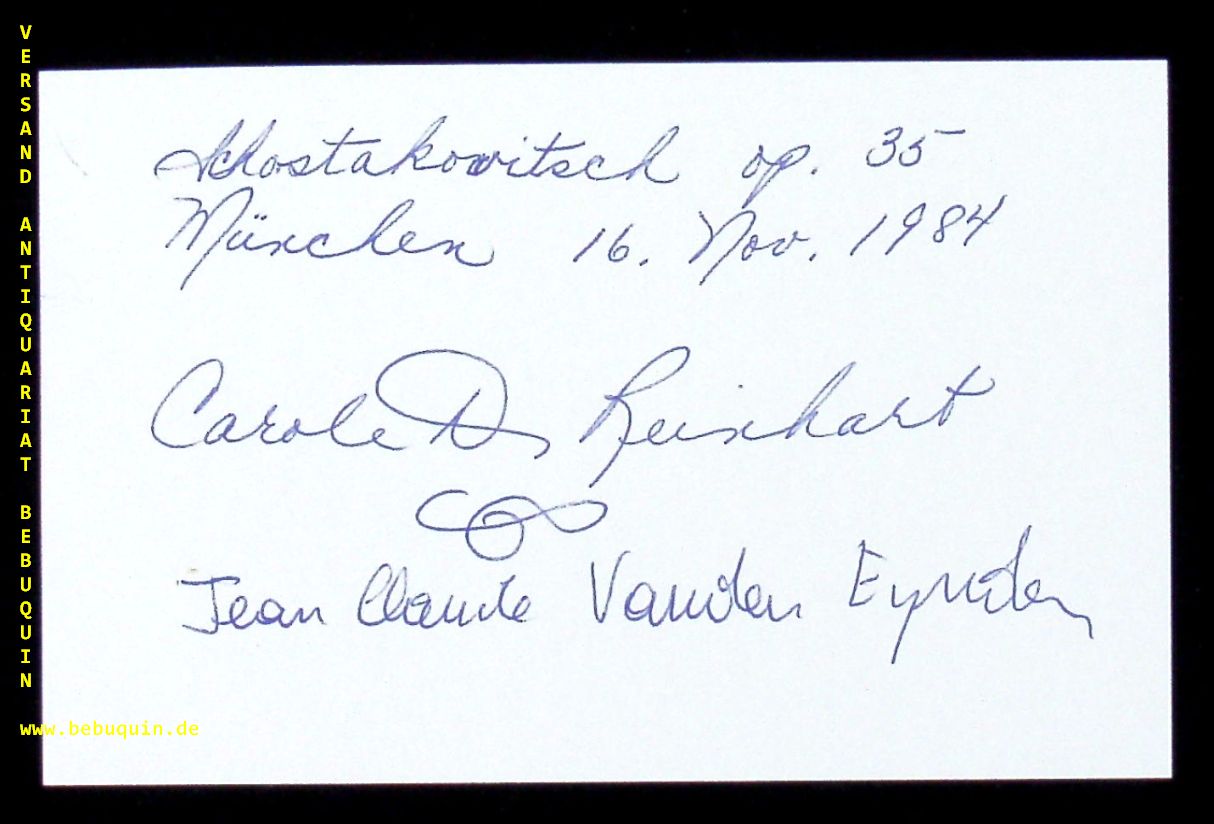 VERSAND ANTIQUARIAT BEBUQUIN
Schostakowitsch op. 35
München 16. Nov. 1984
Carole D. Reinhart
Jean Claude Vanden Eynden
www.bebuquin.de